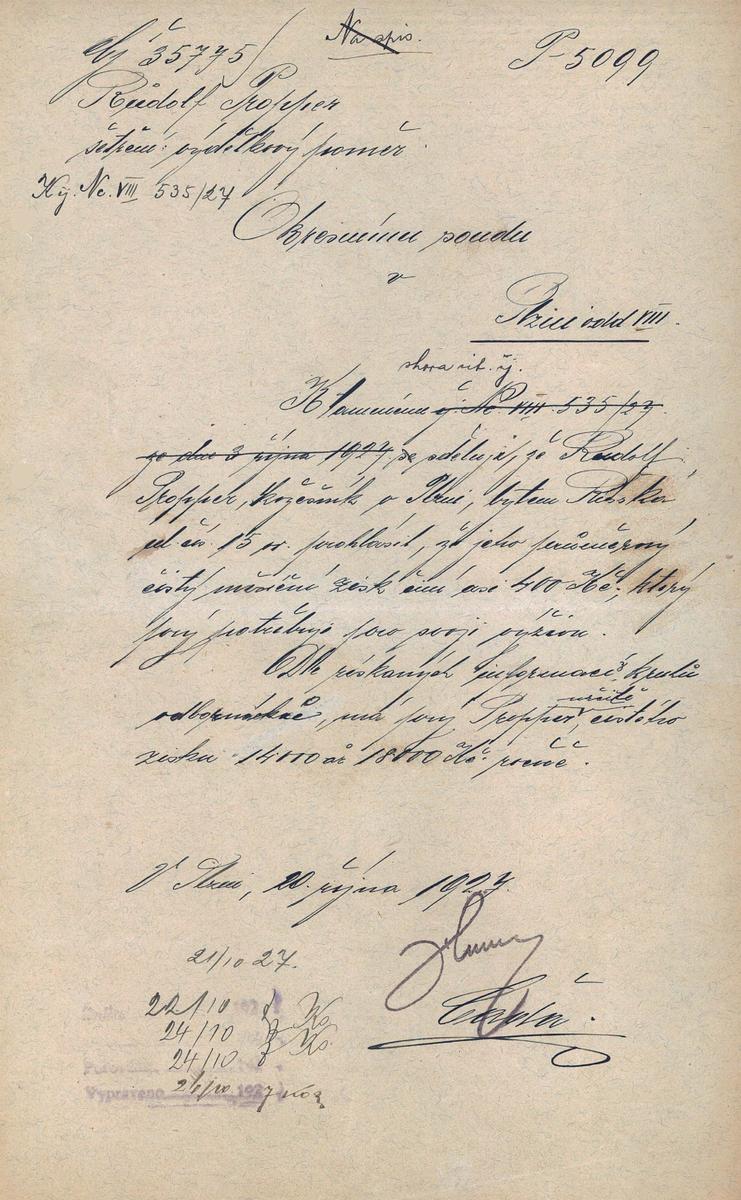 Na spis.
čj 35775/
P-5099
Rudolf Propper
šetření: výdělkový poměr.
K čj. Nc. VIII 535/27
Okresnímu soudu
v
Plzni odd VIII.
shora cit. čj.
K tamnímu čj Nc VIII 535/27
ze dne 3 října 1927 se sděluje, že Rudolf
Propper, kožešník v Plzni, bytem Pražská
ul. čís. 15 n. prohlásil, že jeho průměrový
čistý měsíční zisk činí asi 400 Kč, který
prý potřebuje pro svoji výživu.
Dle získaných informací z kruhů
odborníků, má prý Propper, určitě čistého
zisku 14000 až 18000 Kč ročně.
V Plzni, 20. října 1927.
21/10 27.
22/10
24/10
24/10
Vypraveno 192